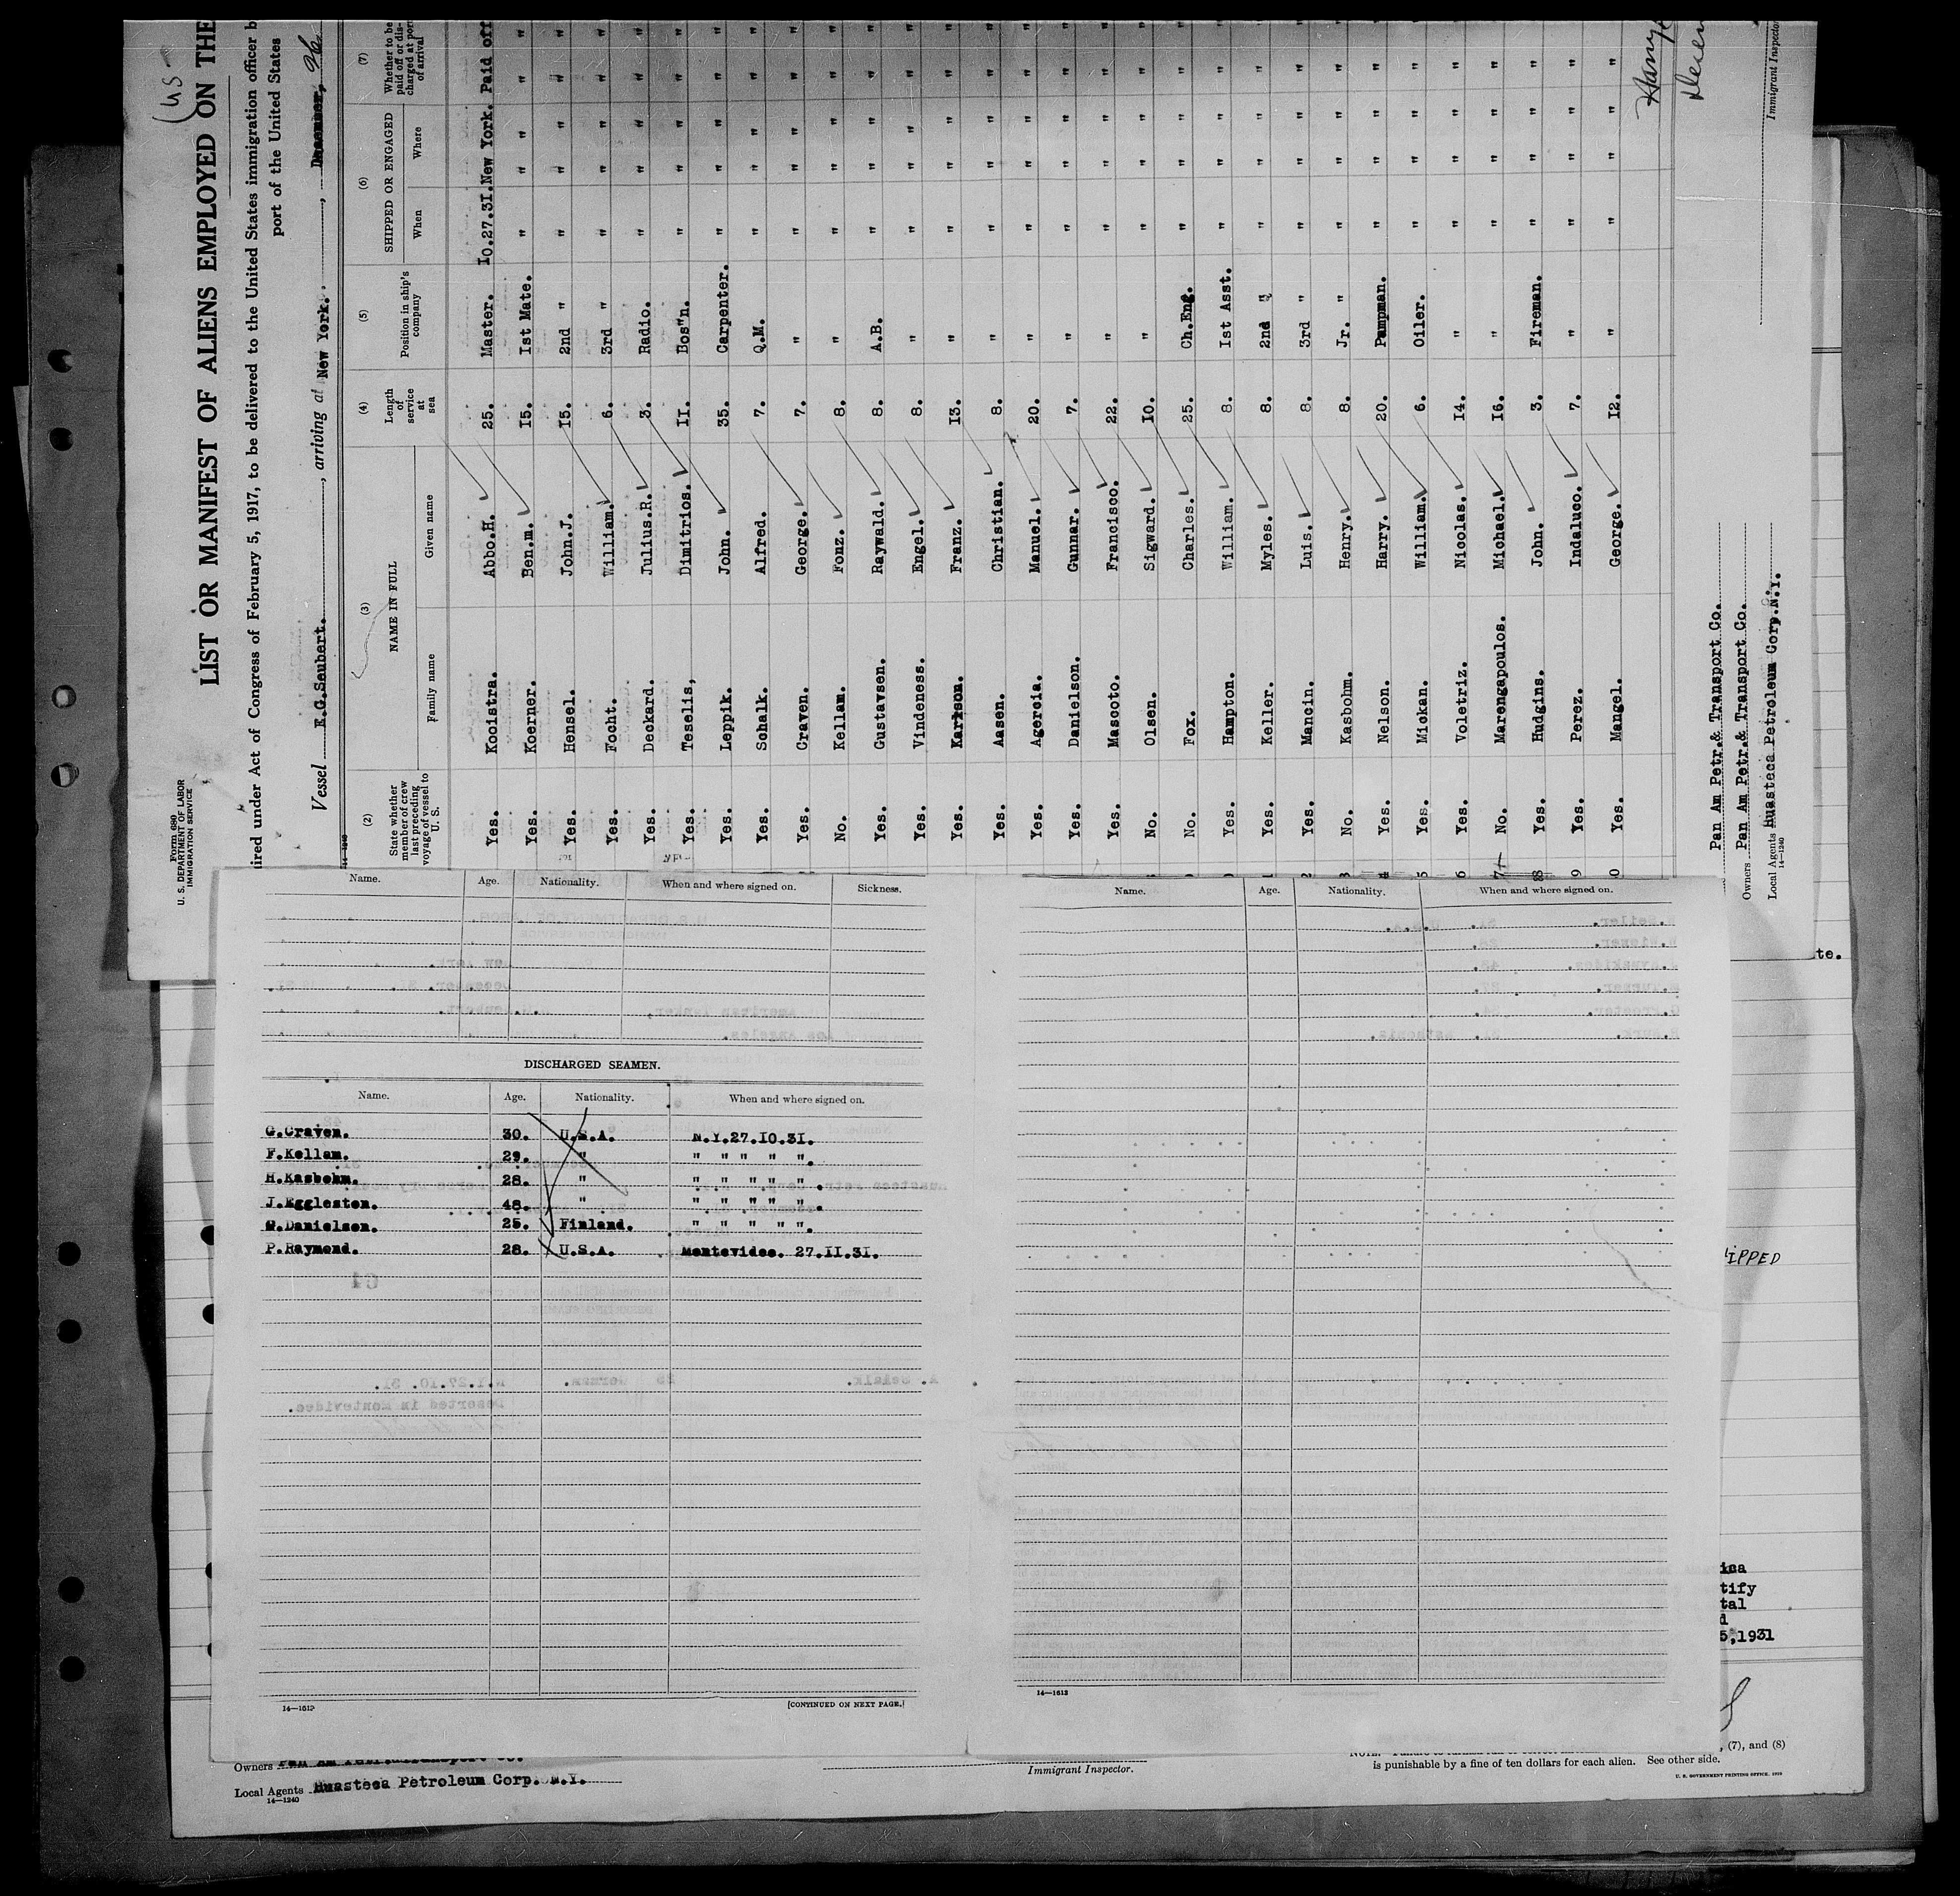 Form 680
U. S. DEPARTMENT OF LABOR
IMMIGRATION SERVICE
LIST OR MANIFEST OF ALIENS EMPLOYED ON THE
ired under Act of Congress of February 5, 1917, to be delivered to the United States immigration officer b
port of the United States
Vessel E.G.Seubert. , arriving at New York. , December, 26
14—1240
(2) (3) (4) (5) (6) (7)
State whether member of crew last preceding voyage of vessel to U. S.
NAME IN FULL
Family name Given name
Length of service at sea
Position in ship's company
SHIPPED OR ENGAGED
When Where
Whether to be paid off or discharged at port of arrival
Yes. Kooistra. Abbo.H. 25. Master. 10.27.31. New York. Paid off
Yes. Koerner. Ben.m. 15. 1st Mate. " " " "
Yes. Hensel. John.J. 15. 2nd " " " " "
Yes. Focht. William. 6. 3rd " " " " "
Yes. Deckard. Julius.R. 3. Radio. " " " "
Yes. Teselis, Dimitrios. 11. Bos"n. " " " "
Yes. Leppik. John. 35. Carpenter. " " " "
Yes. Schalk. Alfred. 7. Q.M. " " " "
Yes. Craven. George. 7. " " " " "
No. Kellam. Fonz. 8. " " " " "
Yes. Gustavsen. Raywald. 8. A.B. " " " "
Yes. Vindeness. Engel. 8. " " " " "
Yes. Karlson. Franz. 13. " " " " "
Yes. Aasen. Christian. 8. " " " " "
Yes. Agercia. Manuel. 20. " " " " "
Yes. Danielson. Gunnar. 7. " " " " "
Yes. Mascoto. Francisco. 22. " " " " "
No. Olsen. Sigward. 10. " " " " "
No. Fox. Charles. 25. Ch.Eng. " " " "
Yes. Hampton. William. 8. 1st Asst. " " " "
Yes. Keller. Myles. 8. 2nd " " " " "
Yes. Mancin. Luis. 8. 3rd " " " " "
No. Kasbohm. Henry. 8. Jr. " " " " "
Yes. Nelson. Harry. 20. Pampman. " " " "
Yes. Mickan. William. 6. Oiler. " " " "
Yes. Voletriz. Nicolas. 14. " " " " "
No. Marengapoulos. Michael. 16. " " " " "
Yes. Hudgins. John. 3. Fireman. " " " "
Yes. Perez. Indaluco. 7. " " " " "
Yes. Mangel. George. 12. " " " " "
Pan Am Petr.& Transport Co.
Owners Pan Am Petr.& Transport Co.
Local Agents Huasteca Petroleum Corp.N.Y.
14—1240
Immigrant Inspector
Name. Age. Nationality. When and where signed on. Sickness.
DISCHARGED SEAMEN.
Name. Age. Nationality. When and where signed on.
G.Craven. 30. U.S.A. N.Y.27.10.31.
F.Kellam. 29. " " " " " ".
H.Kasbohm. 28. " " " " " ".
J.Eggleston. 48. " " " " " ".
G.Danielsen. 25. Finland. " " " " ".
P.Raymond. 28. U.S.A. Montevideo. 27.11.31.
14—1613
[CONTINUED ON NEXT PAGE.]
Name. Age. Nationality. When and where signed on.
14—1613
te.
IPPED
ica
tify
tal
d
5,1931
Owners Pan Am Petr.&Transport Co.
Local Agents Huasteca Petroleum Corp. N.Y.
14—1240
Immigrant Inspector.
, (7), and (8)
is punishable by a fine of ten dollars for each alien. See other side.
U. S. GOVERNMENT PRINTING OFFICE